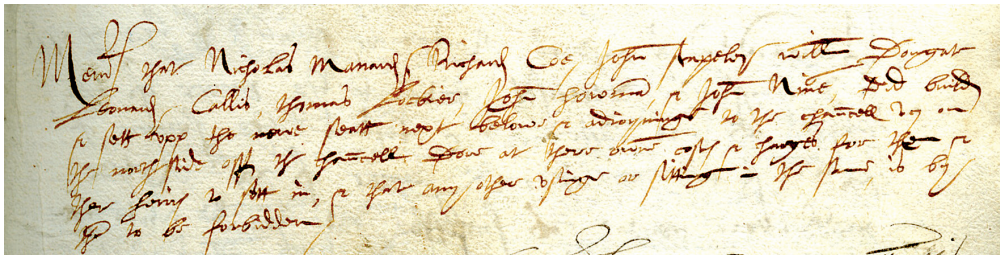 Memd that Nicholas Manard Richard Coe John Stapeley will Dongat
Leonard Callis, thomas Lockier John howman & John Nune, Did build
& sett vpp the newe seatt next belowe & adioyninge to the chancell on
the north side off the chancell Dore at there owne costs & charges for them &
ther heirs to sett in, & that any other vsinge or sitting in the same, is by
them to be forbidden